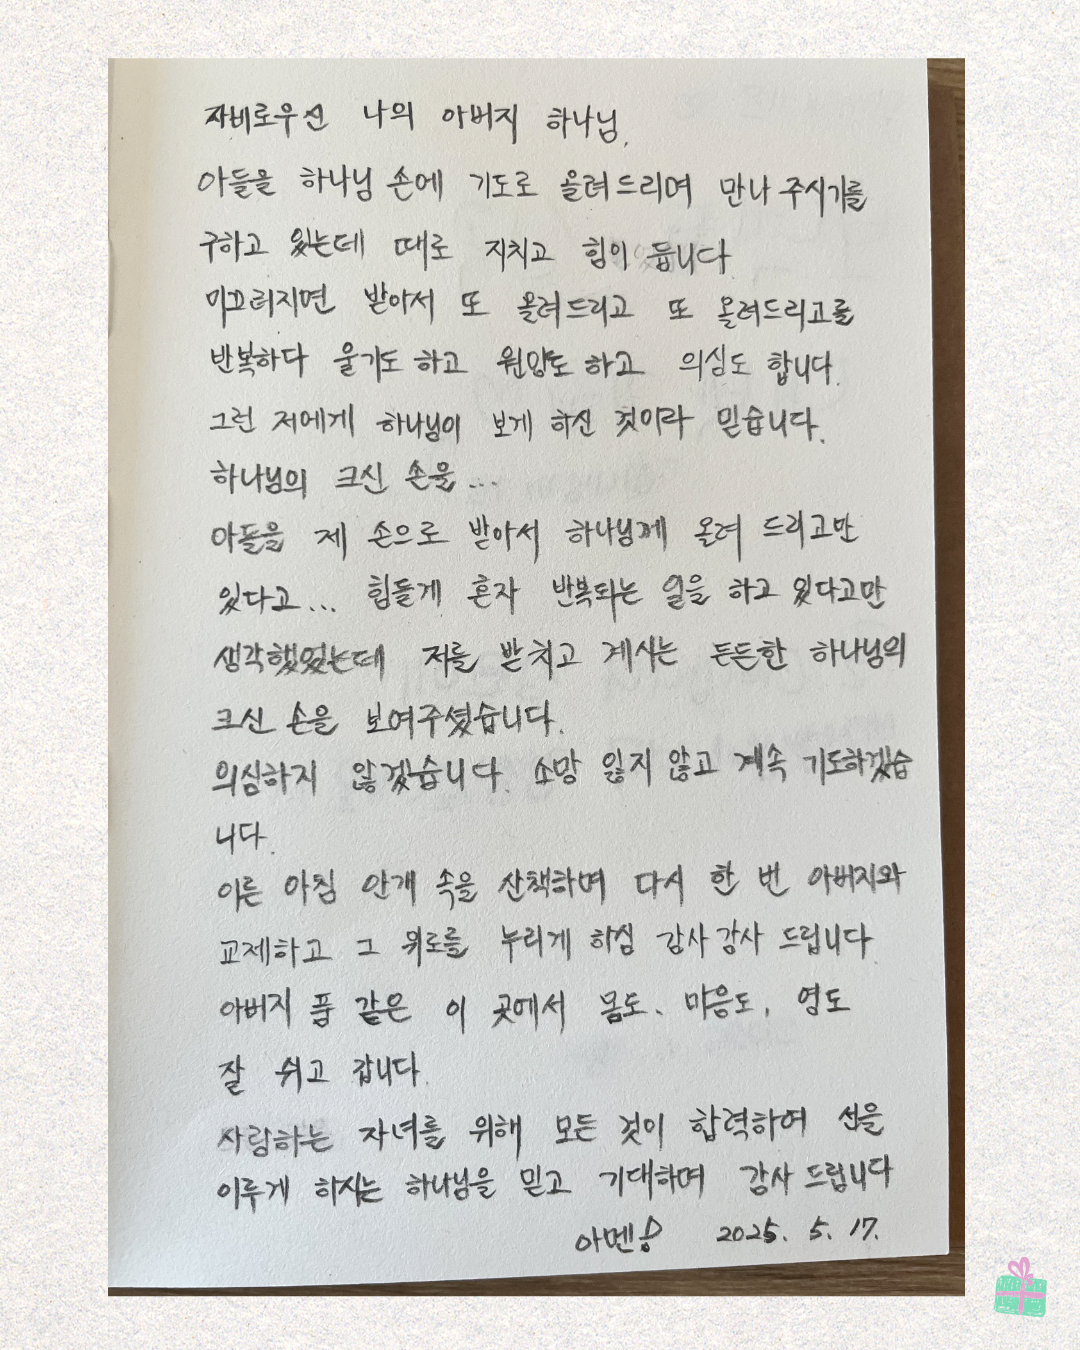 자비로우신 나의 아버지 하나님,
아들을 하나님 손에 기도로 올려드리며 만나주시기를
구하고 있는데 때로 지치고 힘이 듭니다
미끄러지면 받아서 또 올려드리고 또 올려드리고를
반복하다 울기도 하고 원망도 하고 의심도 합니다.
그런 저에게 하나님이 보게 하신 것이라 믿습니다.
하나님의 크신 손을...
아들을 제 손으로 받아서 하나님께 올려 드리고만
있다고... 힘들게 혼자 반복되는 일을 하고 있다고만
생각했었는데 저를 받치고 계시는 든든한 하나님의
크신 손을 보여주셨습니다.
의심하지 않겠습니다. 소망 잃지 않고 계속 기도하겠습
니다.
이른 아침 안개 속을 산책하며 다시 한 번 아버지와
교제하고 그 위로를 누리게 하심 감사 감사 드립니다.
아버지 품 같은 이 곳에서 몸도, 마음도, 영도
잘 쉬고 갑니다.
사랑하는 자녀를 위해 모든 것이 합력하여 선을
이루게 하시는 하나님을 믿고 기대하며 감사 드립니다
아멘 2025. 5. 17.